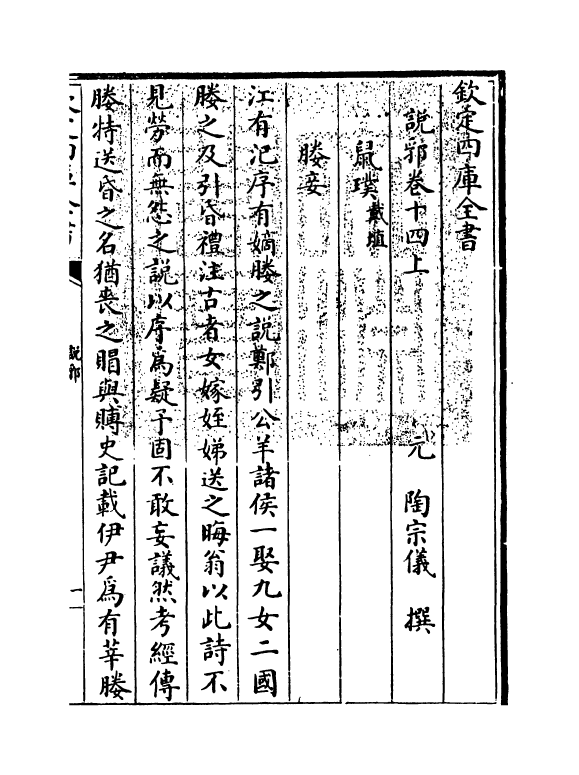 欽定四庫全書
說郛卷十四上
元 陶宗儀 撰
鼠璞 戴埴
媵妾
江有汜序有嫡媵之說鄭引公羊諸侯一娶九女二國
媵之及引昏禮注古者女嫁姪娣送之晦翁以此詩不
見勞而無怨之說以序為疑予固不敢妄議然考經傳
媵特送昏之名猶喪之賵與賻史記載伊尹為有莘媵
說郛
一